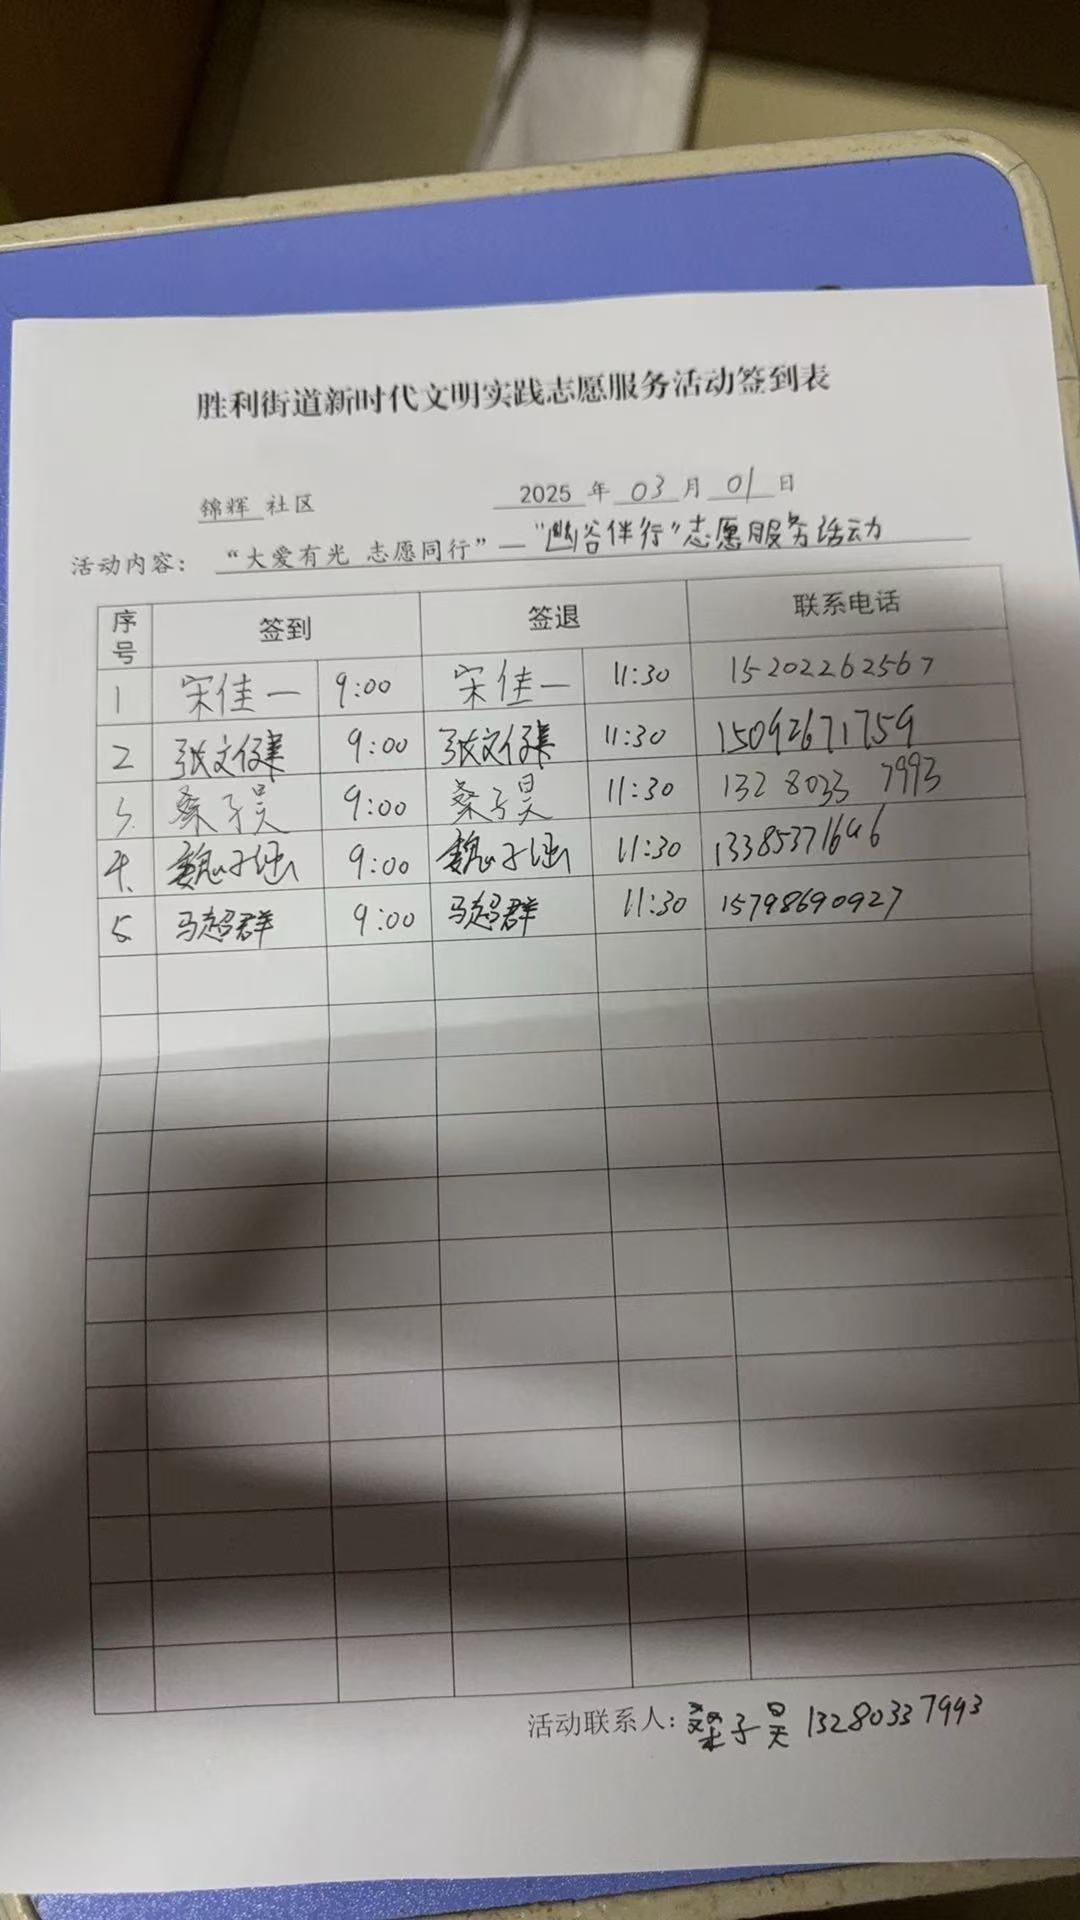 胜利街道新时代文明实践志愿服务活动签到表
锦辉 社区 2025 年 03 月 01 日
活动内容： “大爱有光 志愿同行”—“幽谷伴行”志愿服务活动
序号 签到 签退 联系电话
1 宋佳一 9:00 宋佳一 11:30 15202262567
2 张文 9:00 张文 11:30 15092671759
3. 桑子昊 9:00 桑子昊 11:30 132 8033 7993
4. 魏子 9:00 魏子 11:30 13385371646
5 马超群 9:00 马超群 11:30 15798690927
活动联系人: 桑子昊 13280337993